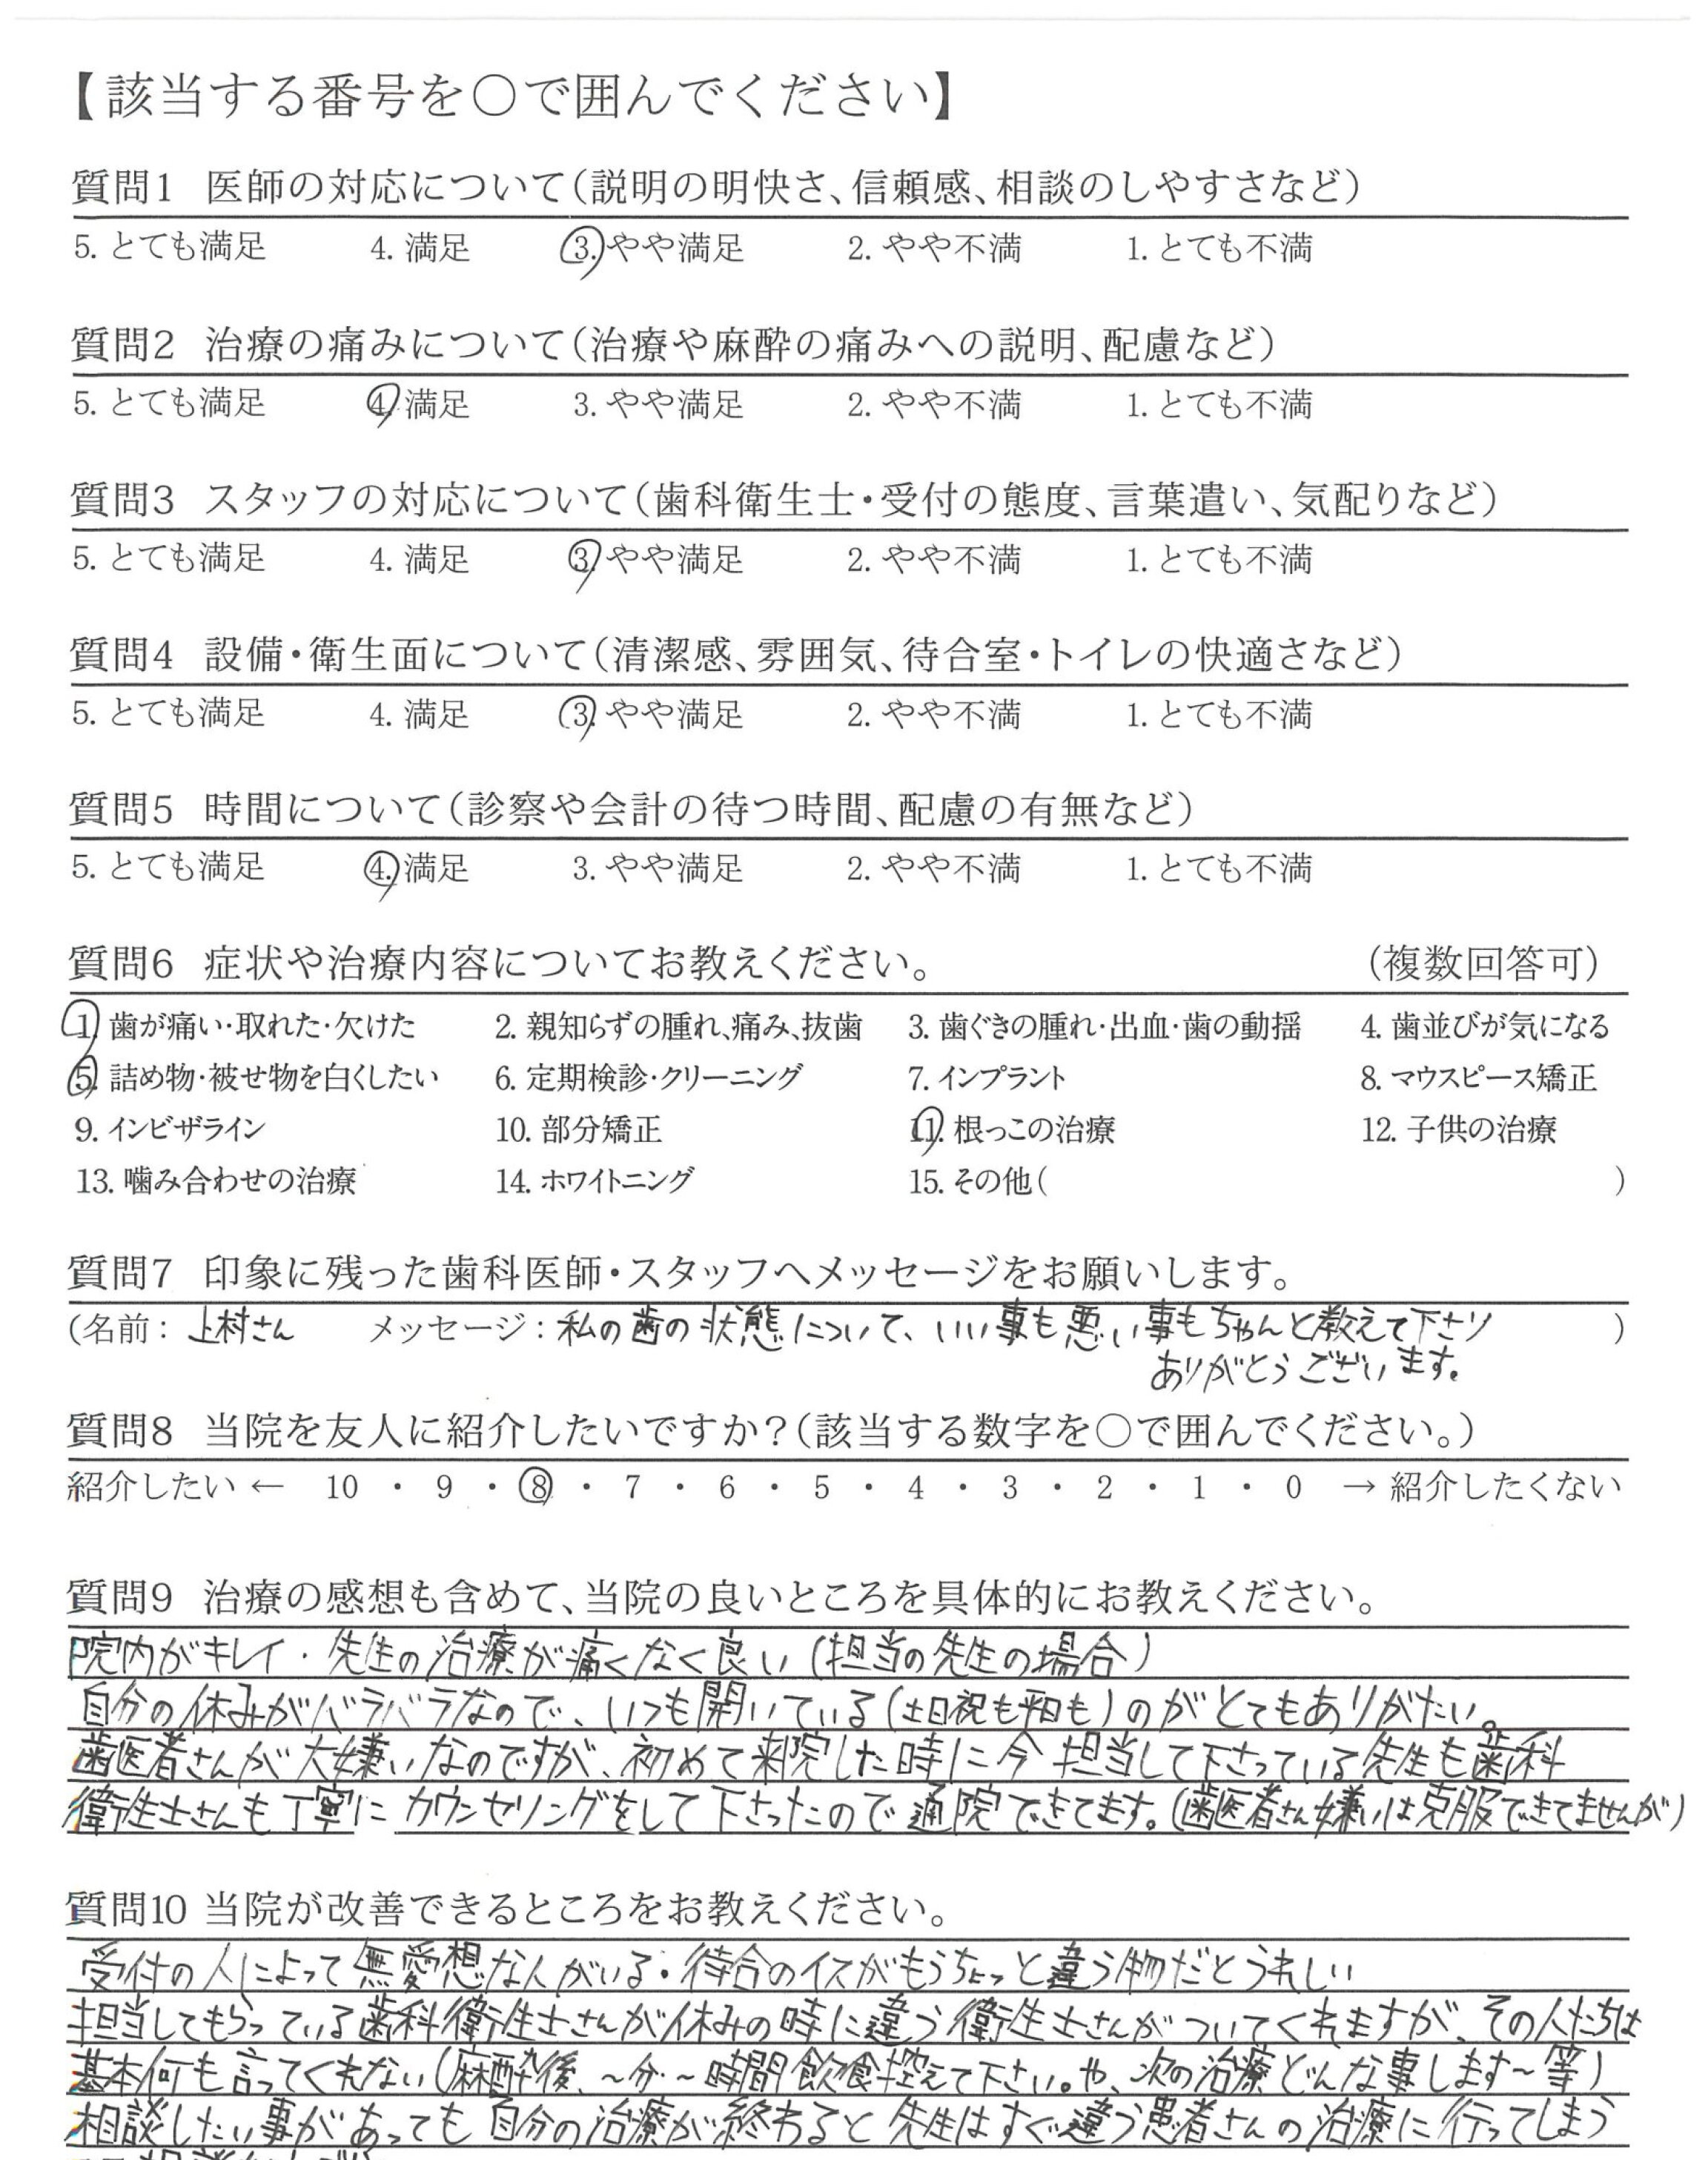 【該当する番号を○で囲んでください】
質問1 医師の対応について(説明の明快さ、信頼感、相談のしやすさなど)
5. とても満足 4. 満足 3. やや満足 2. やや不満 1. とても不満
質問2 治療の痛みについて(治療や麻酔の痛みへの説明、配慮など)
5. とても満足 4. 満足 3. やや満足 2. やや不満 1. とても不満
質問3 スタッフの対応について(歯科衛生士・受付の態度、言葉遣い、気配りなど)
5. とても満足 4. 満足 3. やや満足 2. やや不満 1. とても不満
質問4 設備・衛生面について(清潔感、雰囲気、待合室・トイレの快適さなど)
5. とても満足 4. 満足 3. やや満足 2. やや不満 1. とても不満
質問5 時間について(診察や会計の待つ時間、配慮の有無など)
5. とても満足 4. 満足 3. やや満足 2. やや不満 1. とても不満
質問6 症状や治療内容についてお教えください。 (複数回答可)
1. 歯が痛い・取れた・欠けた 2. 親知らずの腫れ、痛み、抜歯 3. 歯ぐきの腫れ・出血・歯の動揺 4. 歯並びが気になる
5. 詰め物・被せ物を白くしたい 6. 定期検診・クリーニング 7. インプラント 8. マウスピース矯正
9. インビザライン 10. 部分矯正 11. 根っこの治療 12. 子供の治療
13. 噛み合わせの治療 14. ホワイトニング 15. その他( )
質問7 印象に残った歯科医師・スタッフへメッセージをお願いします。
(名前: 上村さん メッセージ: 私の歯の状態について、いい事も悪い事もちゃんと教えて下さり )
ありがとうございます。
質問8 当院を友人に紹介したいですか?(該当する数字を○で囲んでください。)
紹介したい ← 10 ・ 9 ・ 8 ・ 7 ・ 6 ・ 5 ・ 4 ・ 3 ・ 2 ・ 1 ・ 0 → 紹介したくない
質問9 治療の感想も含めて、当院の良いところを具体的にお教えください。
院内がキレイ・先生の治療が痛くなく良い(担当の先生の場合)
自分の休みがバラバラなので、いつも開いている(土日祝も平日も)のがとてもありがたい。
歯医者さんが大嫌いなのですが、初めて来院した時に今担当して下さっている先生も歯科
衛生士さんも丁寧にカウンセリングをして下さったので通院できてます。(歯医者さん嫌いは克服できてませんが)
質問10 当院が改善できるところをお教えください。
受付の人によって無愛想な人がいる・待合のイスがもうちょっと違う物だとうれしい
担当してもらっている歯科衛生士さんが休みの時に違う衛生士さんがついてくれますが、その人たちは
基本何も言ってくれない(麻酔後、～分・～時間飲食控えて下さい。や、次の治療どんな事します～等)
相談したい事があっても自分の治療が終わると先生はすぐ違う患者さんの治療に行ってしまう